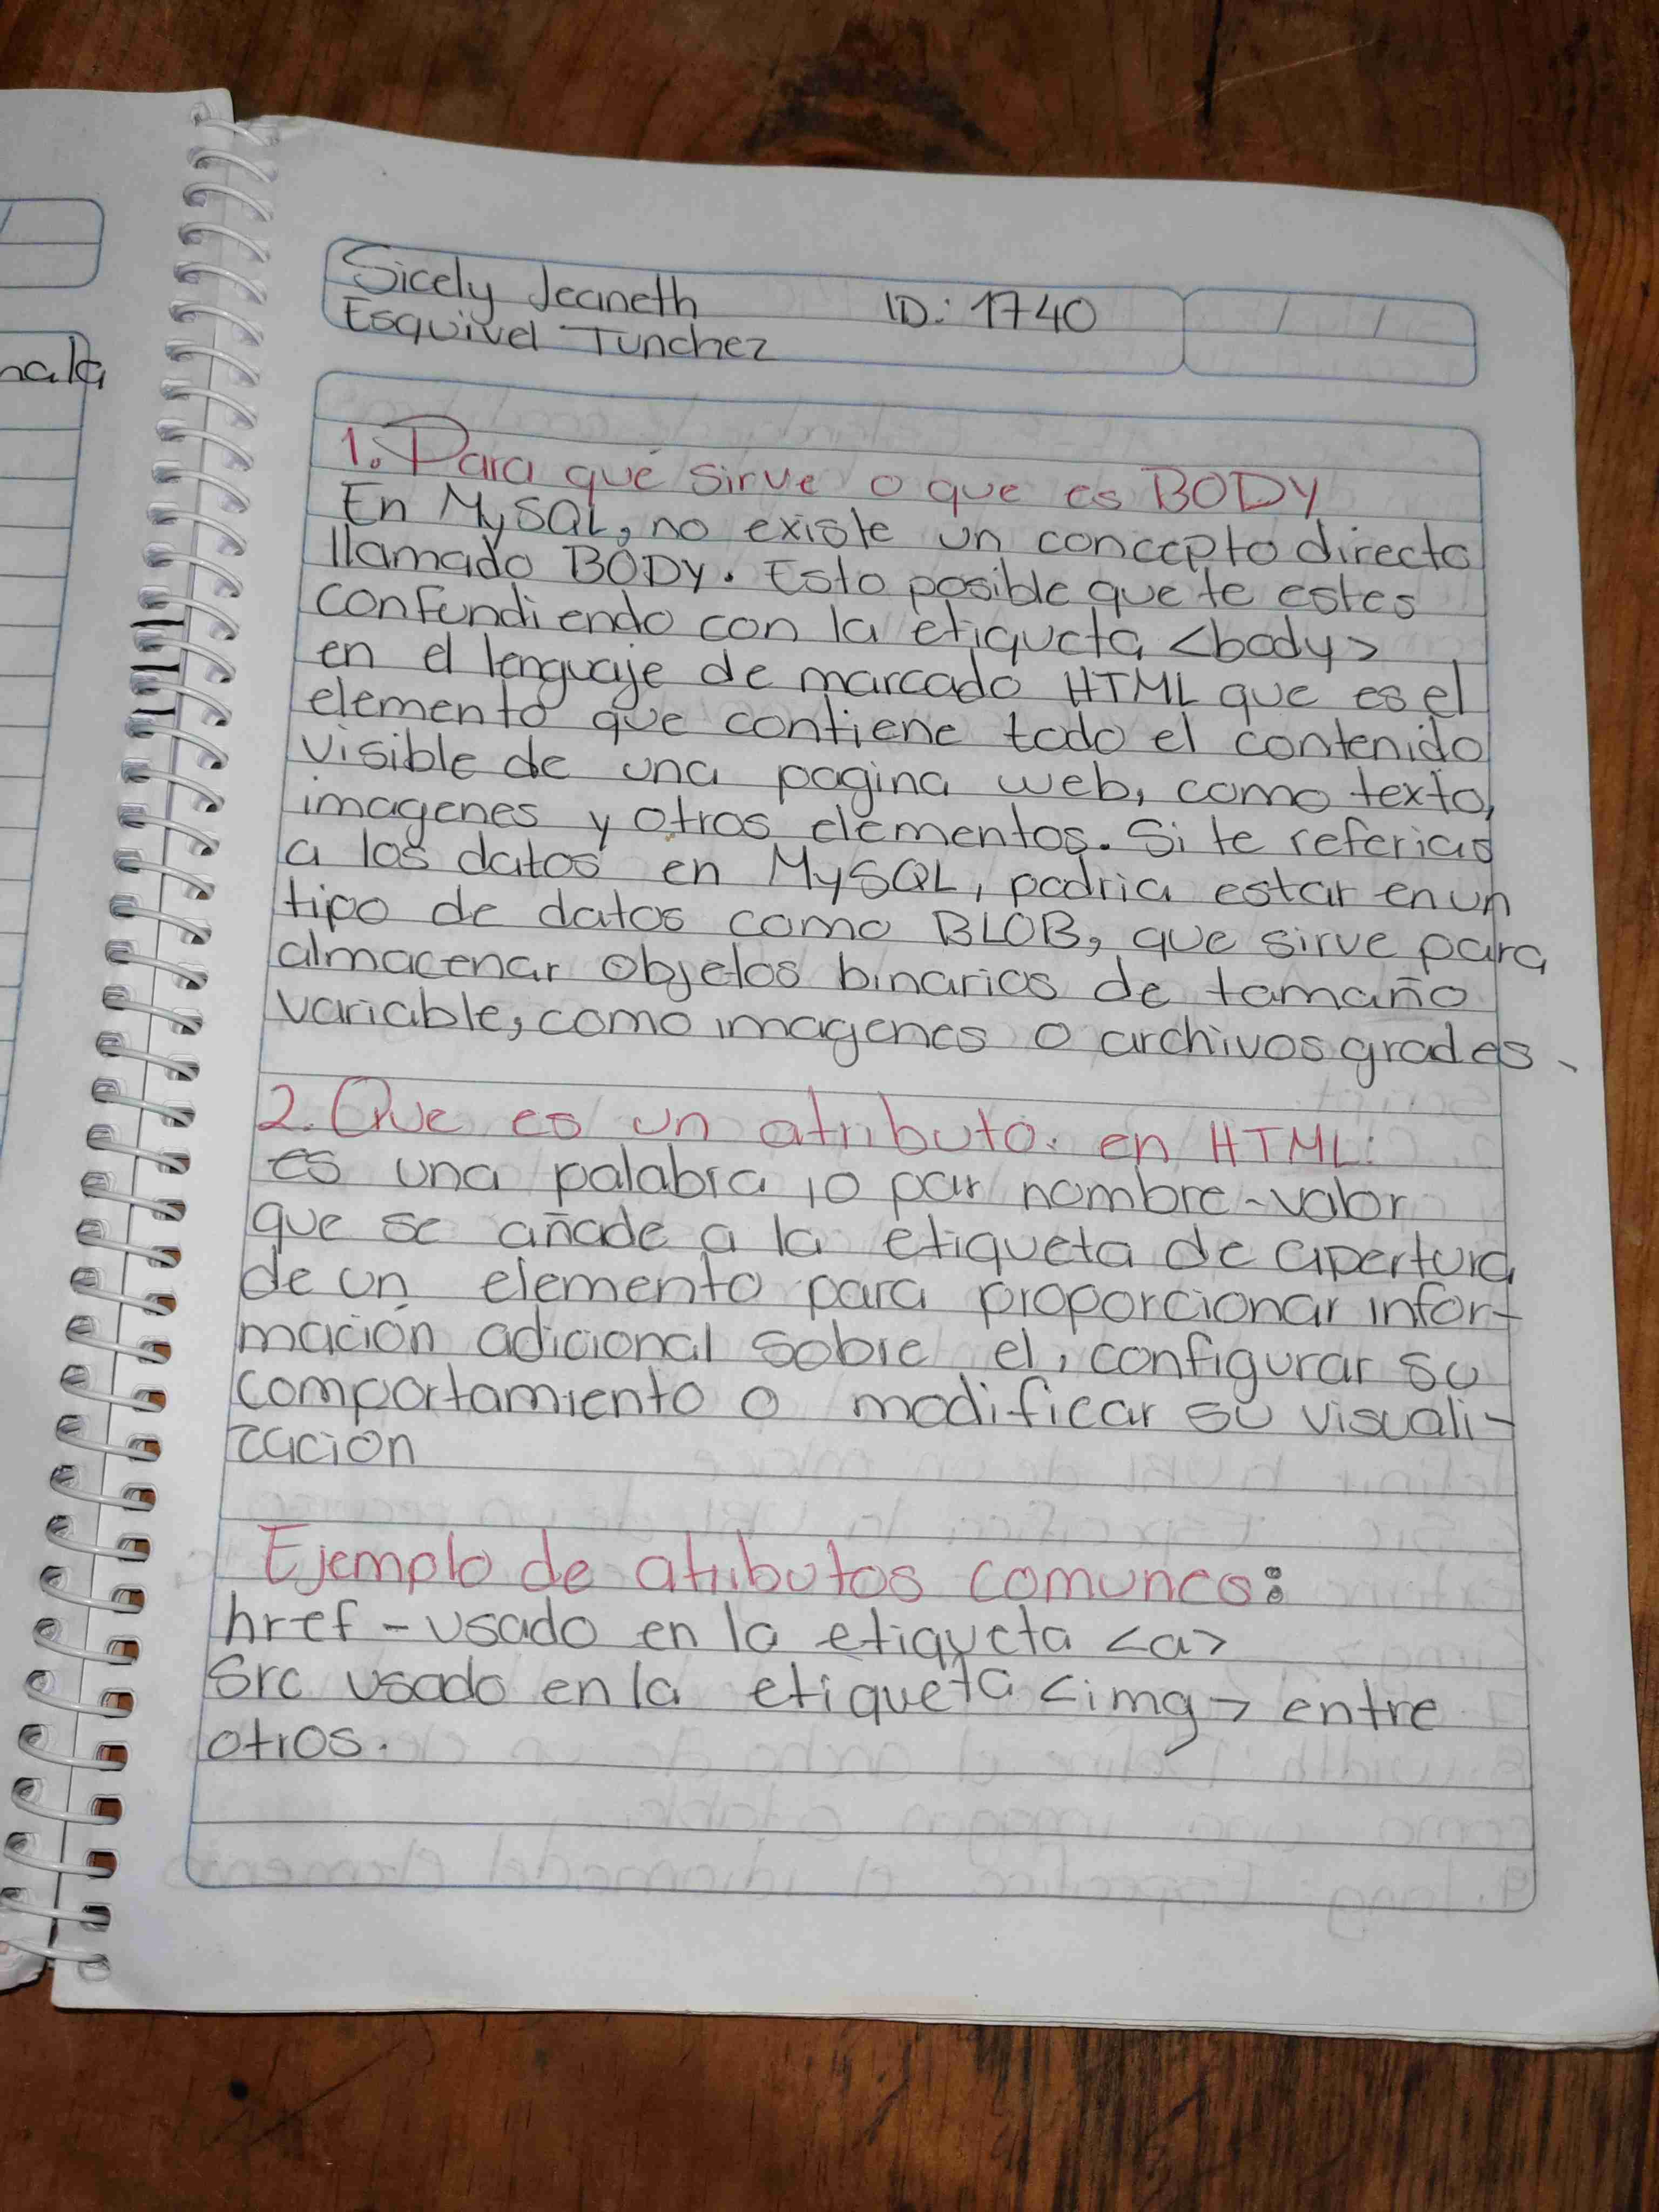 nala
Sicely Jeaneth ID: 1740
Esquivel Tunchez
1. Para qué sirve o que es BODY
En MySQL, no existe un concepto directo
llamado BODY. Esto posible que te estes
confundiendo con la etiqueta <body>
en el lenguaje de marcado HTML que es el
elemento que contiene todo el contenido
visible de una pagina web, como texto,
imagenes y otros elementos. Si te referias
a los datos en MySQL, podria estar en un
tipo de datos como BLOB, que sirve para
almacenar objetos binarios de tamaño
variable, como imagenes o archivos grades.
2. Que es un atributo. en HTML:
es una palabra, o par nombre-valor
que se añade a la etiqueta de apertura
de un elemento para proporcionar infor-
mación adicional sobre el, configurar su
comportamiento o modificar su visuali-
zación
Ejemplo de atributos comunes:
href - usado en la etiqueta <a>
Src usado en la etiqueta <img> entre
otros.